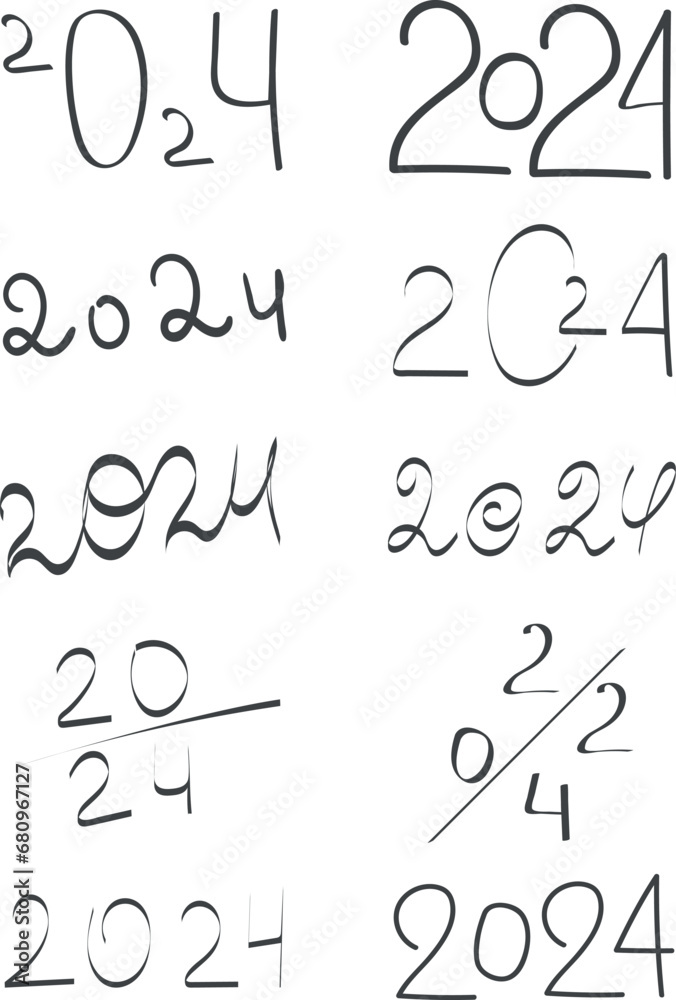 2024 2024
2024 2024
2024 2024
20 2
24 0 2
4
2024 2024
Adobe Stock | #680967127